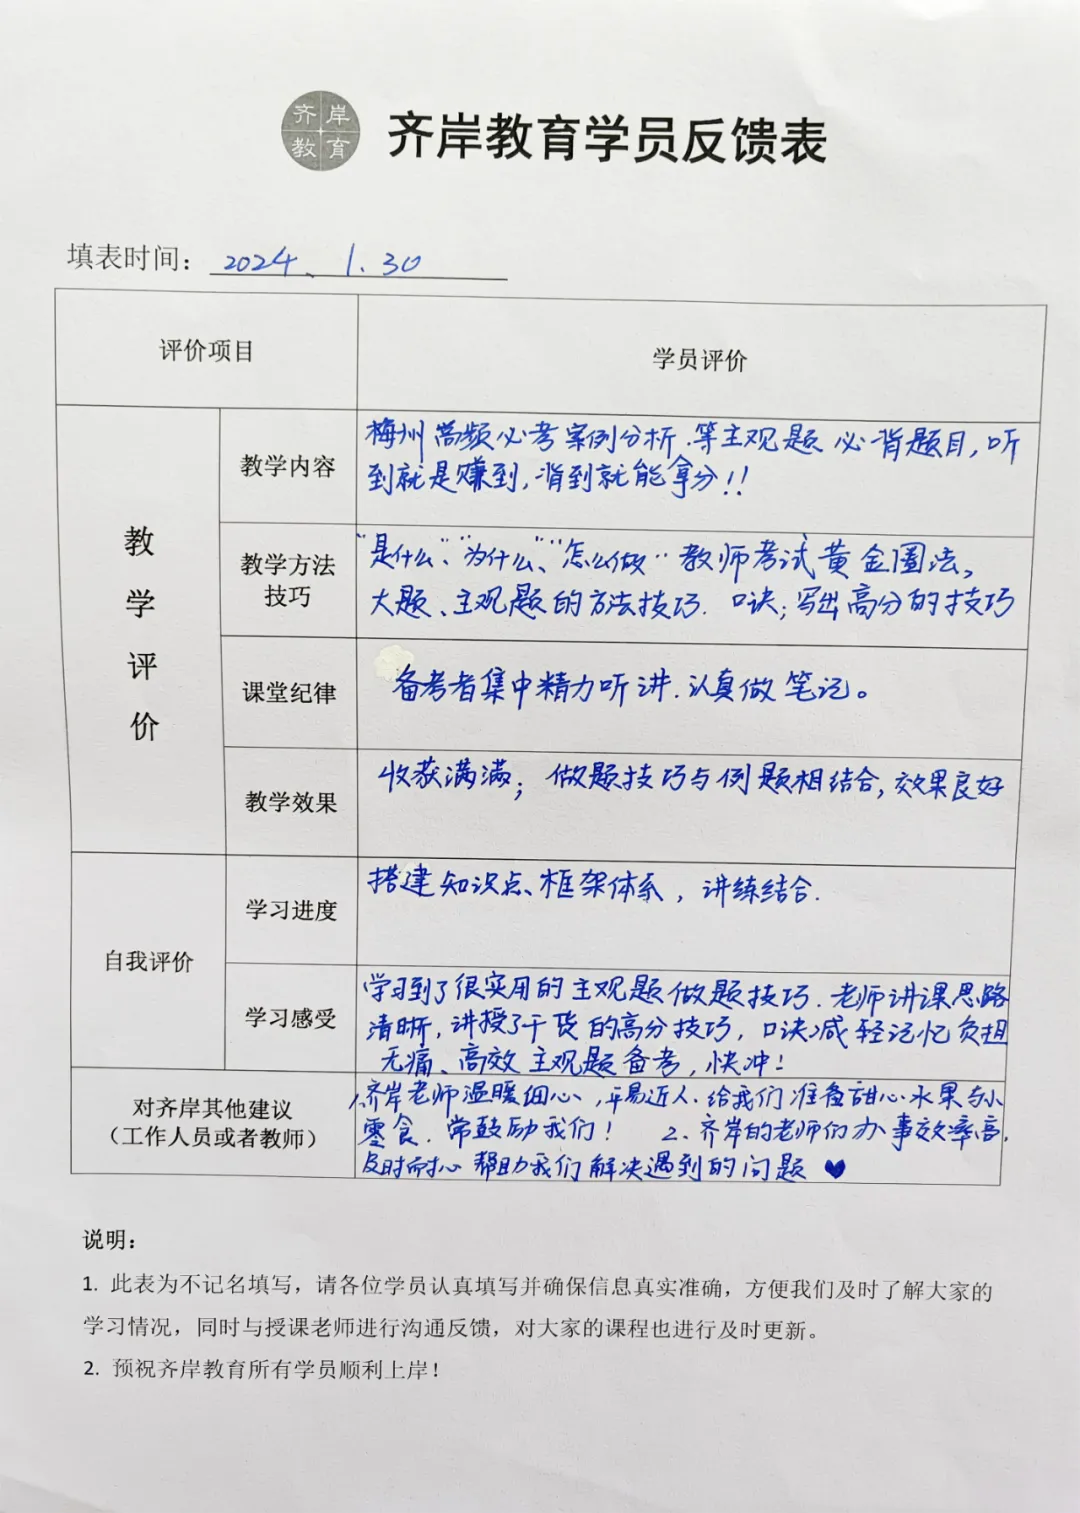 齐岸
教育
齐岸教育学员反馈表
填表时间：2024、1.30
评价项目
学员评价
教学评价
教学内容
梅州高频必考案例分析.等主观题必背题目,听
到就是赚到,背到就能拿分!!
教学方法
技巧
“是什么”、“为什么”、“怎么做”教师考试黄金圈法,
大题、主观题的方法技巧.口诀;写出高分的技巧
课堂纪律
备考者集中精力听讲.认真做笔记。
教学效果
收获满满;做题技巧与例题相结合,效果良好
自我评价
学习进度
搭建知识点、框架体系,讲练结合.
学习感受
学习到了很实用的主观题做题技巧.老师讲课思路
清晰,讲授了干货的高分技巧,口诀减轻记忆负担
无痛、高效主观题备考,快冲!
对齐岸其他建议
（工作人员或者教师）
1.齐岸老师温暖细心,平易近人.给我们准备甜心水果与小
零食.常鼓励我们! 2.齐岸的老师们办事效率高,
及时耐心帮助我们解决遇到的问题♥
说明：
1. 此表为不记名填写，请各位学员认真填写并确保信息真实准确，方便我们及时了解大家的
学习情况，同时与授课老师进行沟通反馈，对大家的课程也进行及时更新。
2. 预祝齐岸教育所有学员顺利上岸！